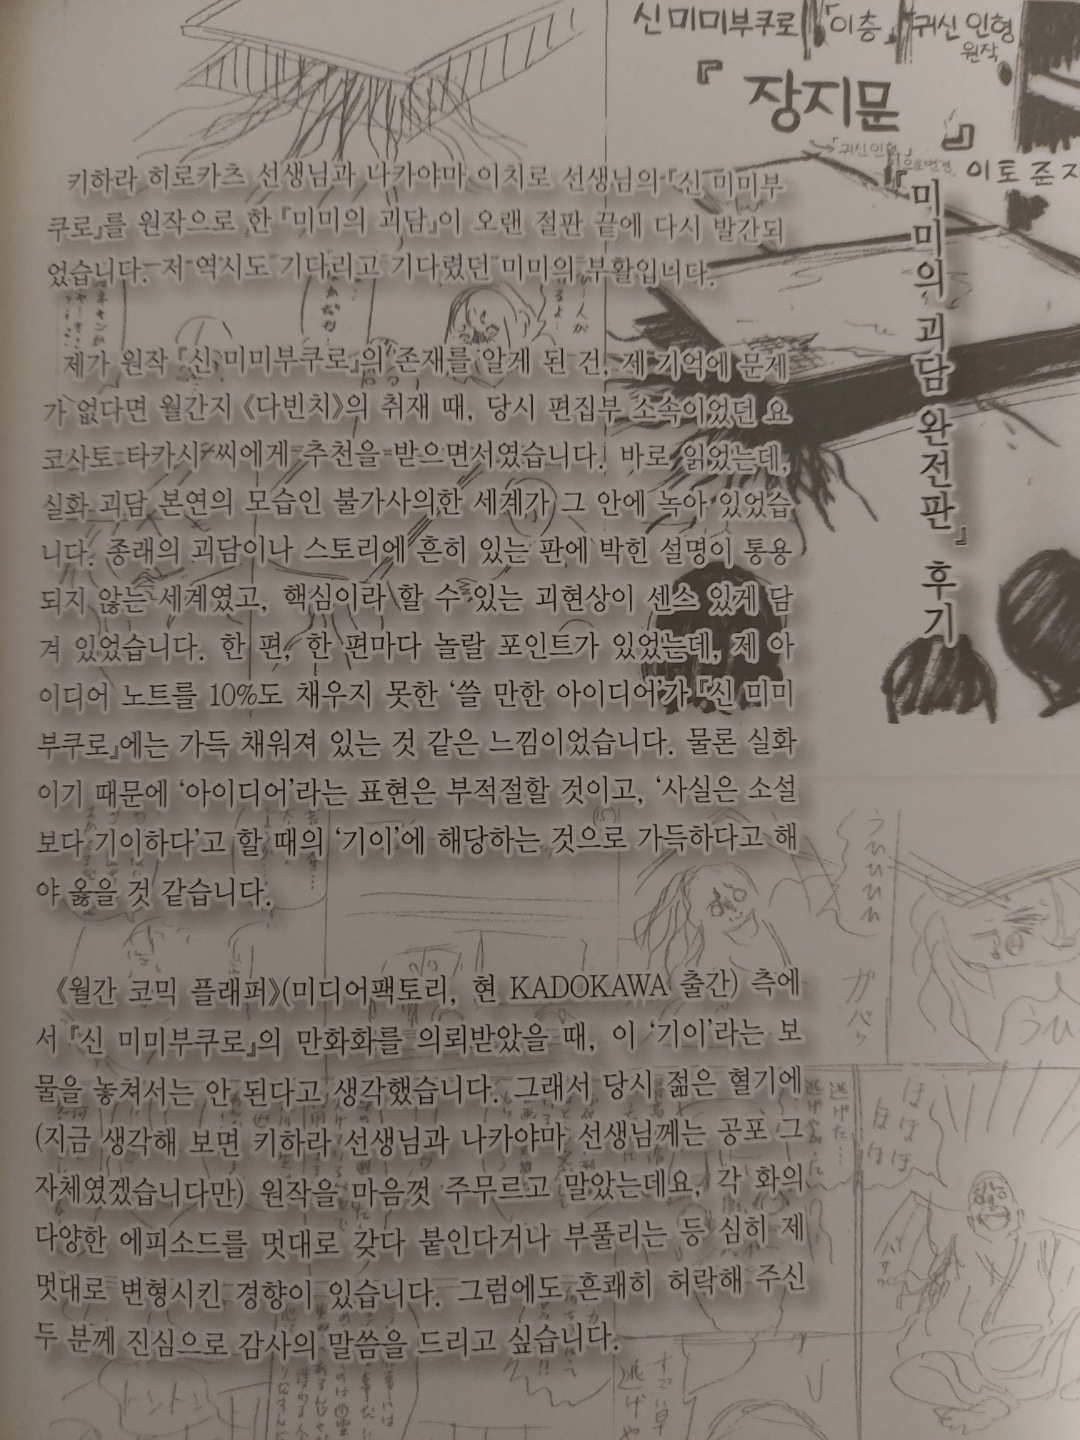 신 미미부쿠로 「이층 귀신 인형
원작
『장지문』
귀신 인형
으로 변경
이토 준지
『미미의 괴담 완전판』 후기
키하라 히로카츠 선생님과 나카야마 이치로 선생님의 『신 미미부
쿠로』를 원작으로 한 『미미의 괴담』이 오랜 절판 끝에 다시 발간되
었습니다. 저 역시도 기다리고 기다렸던 미미의 부활입니다.
제가 원작 『신 미미부쿠로』의 존재를 알게 된 건, 제 기억에 문제
가 없다면 월간지 《다빈치》의 취재 때, 당시 편집부 소속이었던 요
코사토 타카시 씨에게 추천을 받으면서였습니다. 바로 읽었는데,
실화 괴담 본연의 모습인 불가사의한 세계가 그 안에 녹아 있었습
니다. 종래의 괴담이나 스토리에 흔히 있는 판에 박힌 설명이 통용
되지 않는 세계였고, 핵심이라 할 수 있는 괴현상이 센스 있게 담
겨 있었습니다. 한 편, 한 편마다 놀랄 포인트가 있었는데, 제 아
이디어 노트를 10%도 채우지 못한 ‘쓸 만한 아이디어’가 『신 미미
부쿠로』에는 가득 채워져 있는 것 같은 느낌이었습니다. 물론 실화
이기 때문에 ‘아이디어’라는 표현은 부적절할 것이고, ‘사실은 소설
보다 기이하다’고 할 때의 ‘기이’에 해당하는 것으로 가득하다고 해
야 옳을 것 같습니다.
《월간 코믹 플래퍼》(미디어팩토리, 현 KADOKAWA 출간) 측에
서 『신 미미부쿠로』의 만화화를 의뢰받았을 때, 이 ‘기이’라는 보
물을 놓쳐서는 안 된다고 생각했습니다. 그래서 당시 젊은 혈기에
(지금 생각해 보면 키하라 선생님과 나카야마 선생님께는 공포 그
자체였겠습니다만) 원작을 마음껏 주무르고 말았는데요, 각 화의
다양한 에피소드를 멋대로 갖다 붙인다거나 부풀리는 등 심히 제
멋대로 변형시킨 경향이 있습니다. 그럼에도 흔쾌히 허락해 주신
두 분께 진심으로 감사의 말씀을 드리고 싶습니다.
うひひひひ
ガバッ
うひ
ほほほほほ
逃げた…